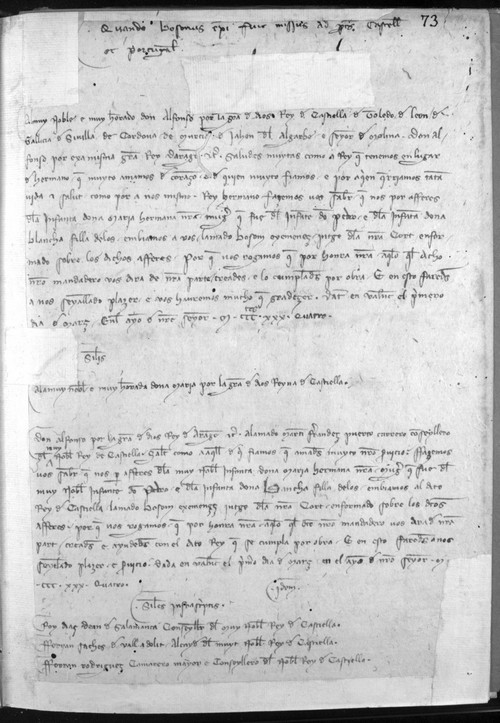 73
Quando Bosonus epi fuit missus ad ptes Castell
et portugal
Alamuy noble e muy horado don Alfonso por la gra de dios Rey de Castella de Toledo de leon de
Gallicia de Sivilla de Cordova de Murcia e de Jahen del Algarbe e seyor de Molina don al
fonso por exa misma gra Rey darago etc saludes muytas como a Rey que tenemos en lugar
de hermano que muyto amamos de coraço e de quien muyto fiamos e por a quien querriamos tanta
vida e salut como por a nos mismo Rey hermano fazemos vos saber que nos por afferes
dla Infanta dona Maria hermana nra muger que fue del Infante do Pedro e dla Infanta dona
blancha filla dellos embiamos a vos lamado Boson exemenez jutge dla nra Cort enfor
mado sobre los dichos afferes Por que vos rogamos que por honra nra aqllo quel dicho
nro mandadero vos dira de nra parte creades e lo complades por obra E en esto faredes
a nos seyallado plazer e vos hauremos mucho que gradecer dat en valencia el primero
dia de Março Enl ayo de nre seyor M CCC XXX Quatro
Similis
Alamuy noble e muy horada dona Maria por la gra de dios Reyna de Castella
Don alfonso por la gra de dios Rey de Arago etc Alamado Marti Fferrandez puerto carrero conseyllero
dl muy Noble Rey de Castella Salut como a aqll de qui fiamos e amades muyto nro servicio Ffazemos
vos saber que nos por afferes dla muy noble Infanta dona Maria hermana nra muger que fue del
muy noble Infante do Pedro e dla Infanta dona blancha filla dellos embiamos al dito
Rey de Castella lamado Boson exemenez jutge dla nra Cort enformado sobre los ditos
afferes por que vos rogamos que por honra nra aqllo quel dito nro mandadero vos dira de nra
part creades e ayudedes con el dito Rey que se cumpla por obra E en esto faredes a nos
seyalado plazer e servicio Dada en valencia el primero dia de Março en el ayo de nro seyor M
CCC XXX Quatro
Idem
Similis infrascriptis
Roy diaz dean de Salamanca Conseyllero dl muy noble Rey de Castella
Fferran sanches de valladolit Alcayde dl muyt noble Rey de Castella
Fferran rodriguez Camarero mayor e Conseyllero dl noble Rey de Castello